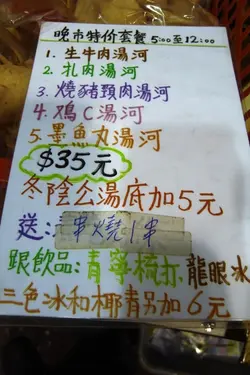 晚市特价套餐 5:00至12:00
1. 生牛肉湯河
2. 扎肉湯河
3. 燒豬頸肉湯河
4. 鷄C湯河
5. 墨魚丸湯河
$35元
冬陰公湯底加5元
送: 串燒1串
跟飲品: 青寧梳打,龍眼冰
三色冰和椰青另加6元